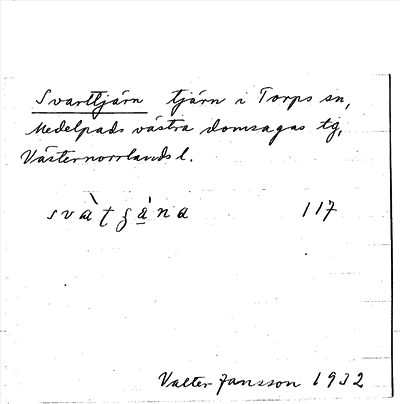 Svarttjärn tjärn i Torps sn,
Medelpads västra domsagas tg,
Västernorrlands l.
svàtʒà̱na 117
Valter Jansson 1932